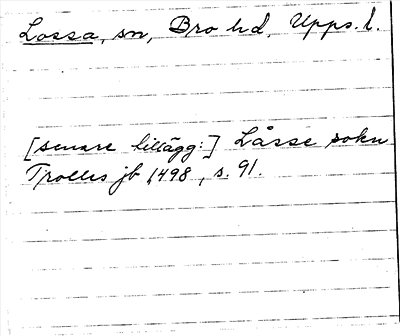 Lossa, sn, Bro hd, Upps. l.
[senare tillägg:] Låsse sokn
Trolles jb 1498, s. 91.